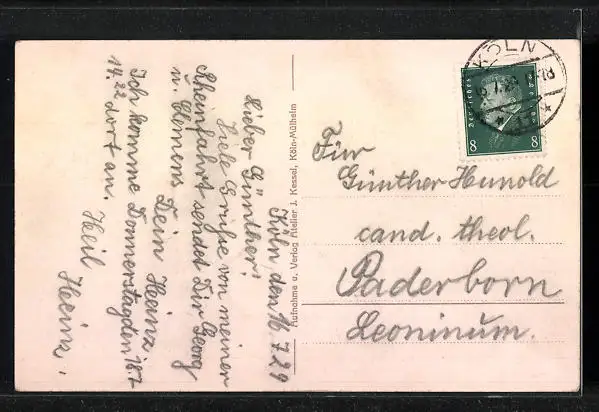 Köln den 16.7.29
Lieber Günther!
Viele Grüße von meiner
Rheinfahrt sendet Dir Georg
u. Clemens
Dein Heinz
Ich komme Donnerstag den 18.7
14.22 dort an.
Heil
Heinz.
Aufnahme u. Verlag Atelier J. Kessel, Köln-Mülheim
KÖLN
Deutsches
8 8
Für
Günther Hunold
cand. theol.
Paderborn
Leoninum.